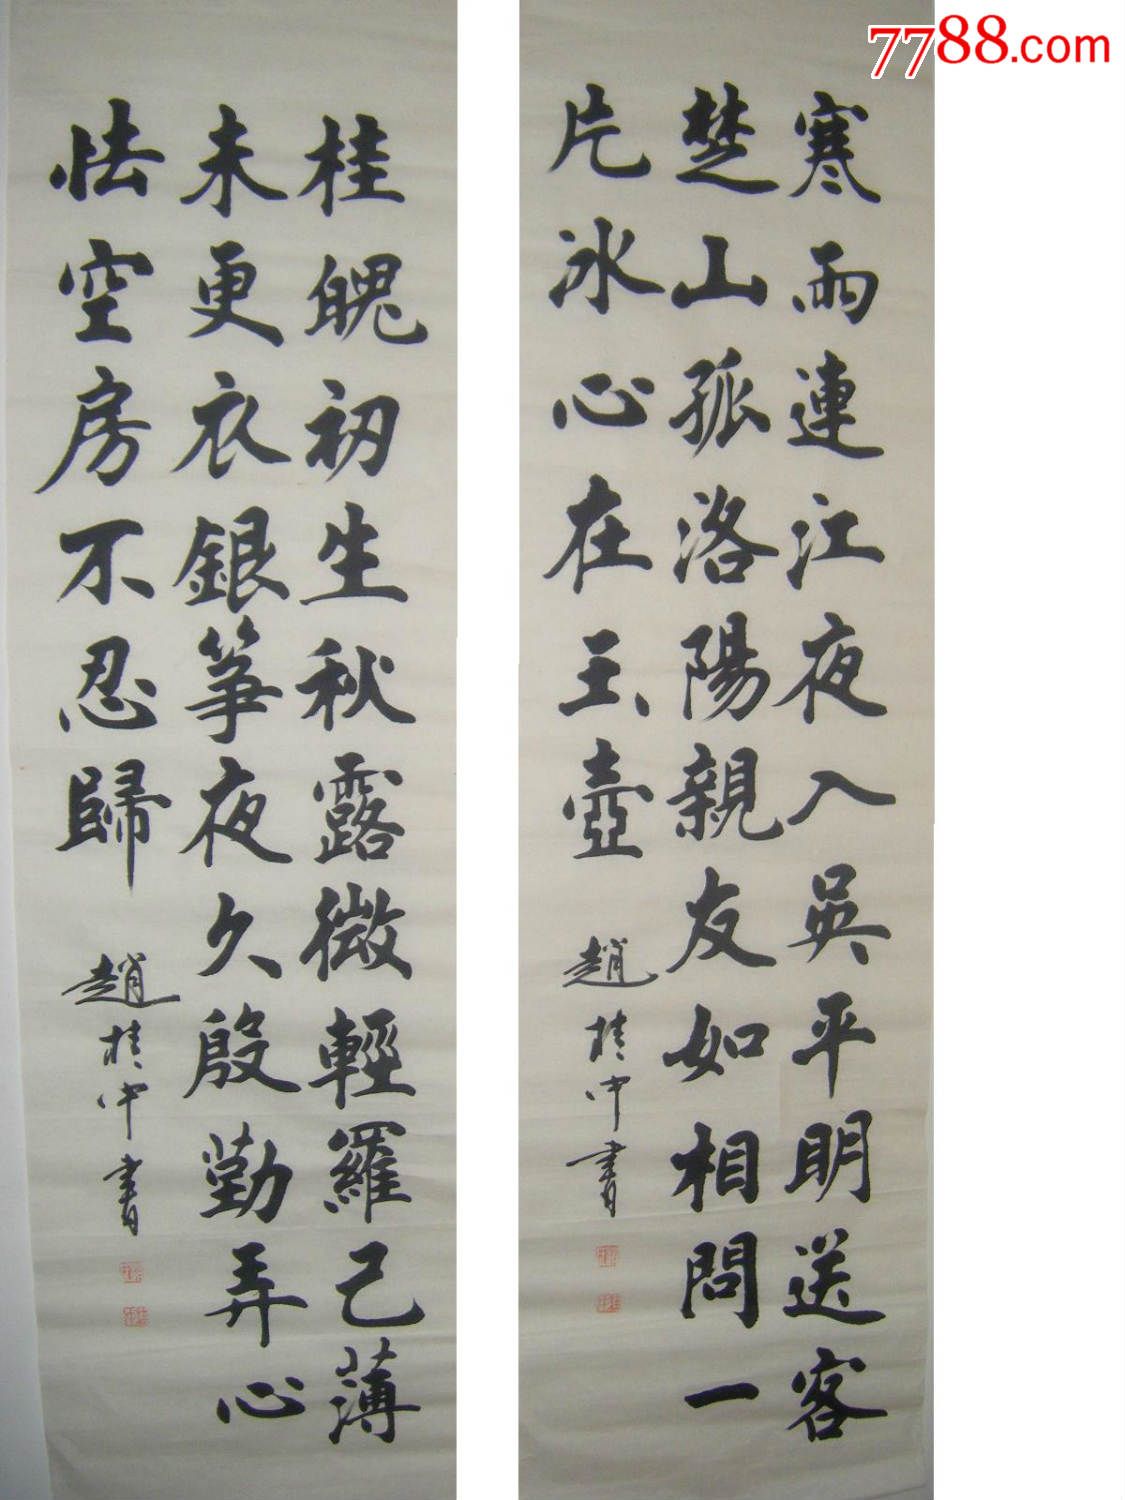 7788.com
寒雨連江夜入吳平明送客
楚山孤洛陽親友如相問一
片冰心在玉壺
趙桂中書
桂魄初生秋露微輕羅己薄
未更衣銀箏夜久殷勤弄心
怯空房不忍歸
趙桂中書